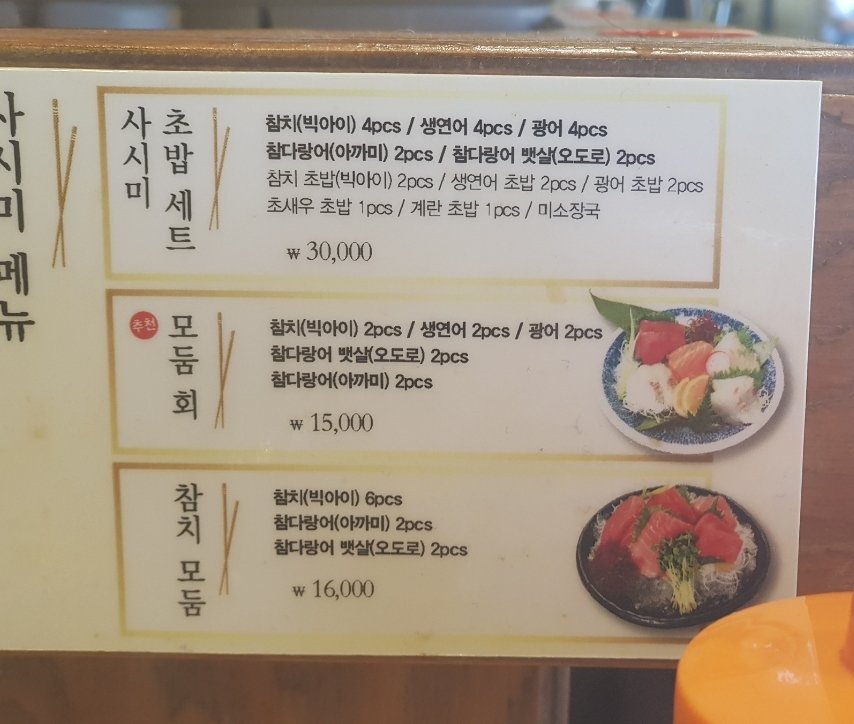 사시미 메뉴
사시미
초밥 세트
참치(빅아이) 4pcs / 생연어 4pcs / 광어 4pcs
참다랑어(아까미) 2pcs / 참다랑어 뱃살(오도로) 2pcs
참치 초밥(빅아이) 2pcs / 생연어 초밥 2pcs / 광어 초밥 2pcs
초새우 초밥 1pcs / 계란 초밥 1pcs / 미소장국
₩ 30,000
추천
모둠 회
참치(빅아이) 2pcs / 생연어 2pcs / 광어 2pcs
참다랑어 뱃살(오도로) 2pcs
참다랑어(아까미) 2pcs
₩ 15,000
참치 모둠
참치(빅아이) 6pcs
참다랑어(아까미) 2pcs
참다랑어 뱃살(오도로) 2pcs
₩ 16,000